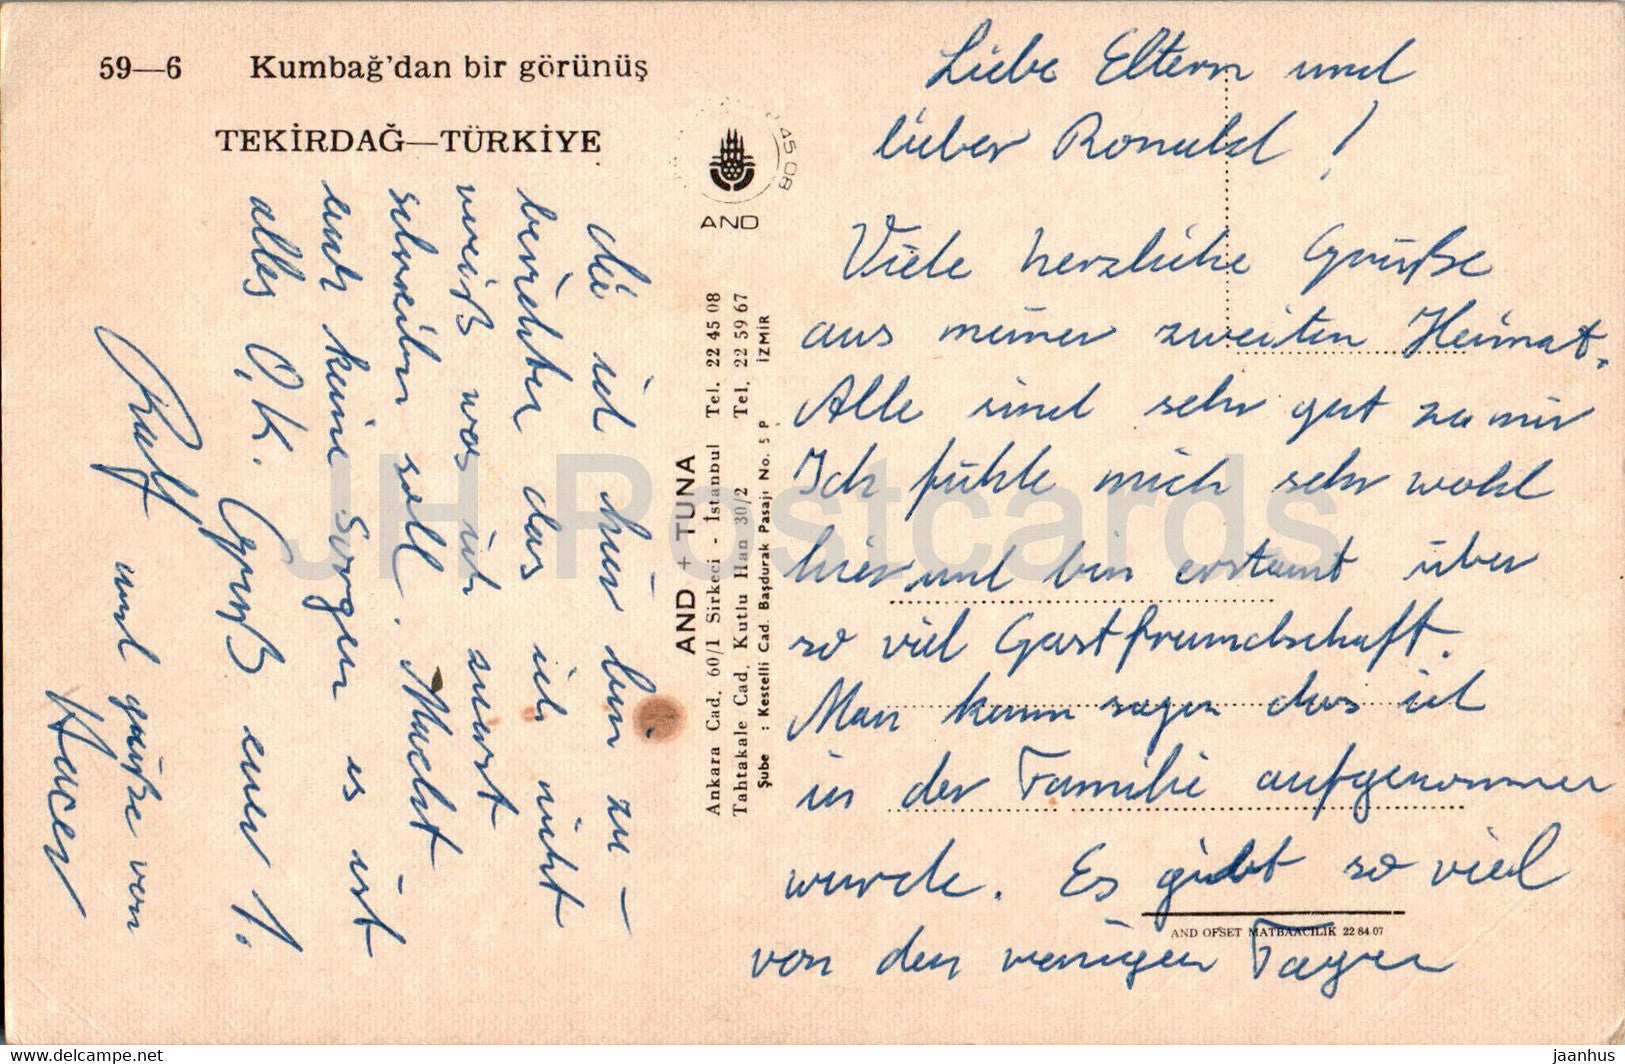 59—6 Kumbağ'dan bir görünüş
TEKİRDAĞ—TÜRKİYE
45 08
AND
AND + TUNA
Ankara Cad. 60/1 Sirkeci - İstanbul Tel. 22 45 08
Tahtakale Cad. Kutlu Han 30/2 Tel. 22 59 67
Şube : Kestelli Cad. Başdurak Pasajı No. 5 P İZMİR
Liebe Eltern und
lieber Ronald !
Viele herzliche Grüße
aus meiner zweiten Heimat.
Alle sind sehr gut zu mir
Ich fühle mich sehr wohl
hier und bin erstaunt über
so viel Gastfreundschaft.
Man kann sagen das ich
in der Familie aufgenommen
wurde. Es gibt so viel
von den wenigen Tagen
AND OFSET MATBAACILIK 22 84 07
die ich hier bin zu-
berichten das ich nicht
weiß was ich zuerst
schreiben soll. Macht
euch keine Sorgen es ist
alles O.K. Gruß euer 1.
Ralf und grüße von
Hacer
JH Postcards
www.delcampe.net
jaanhus